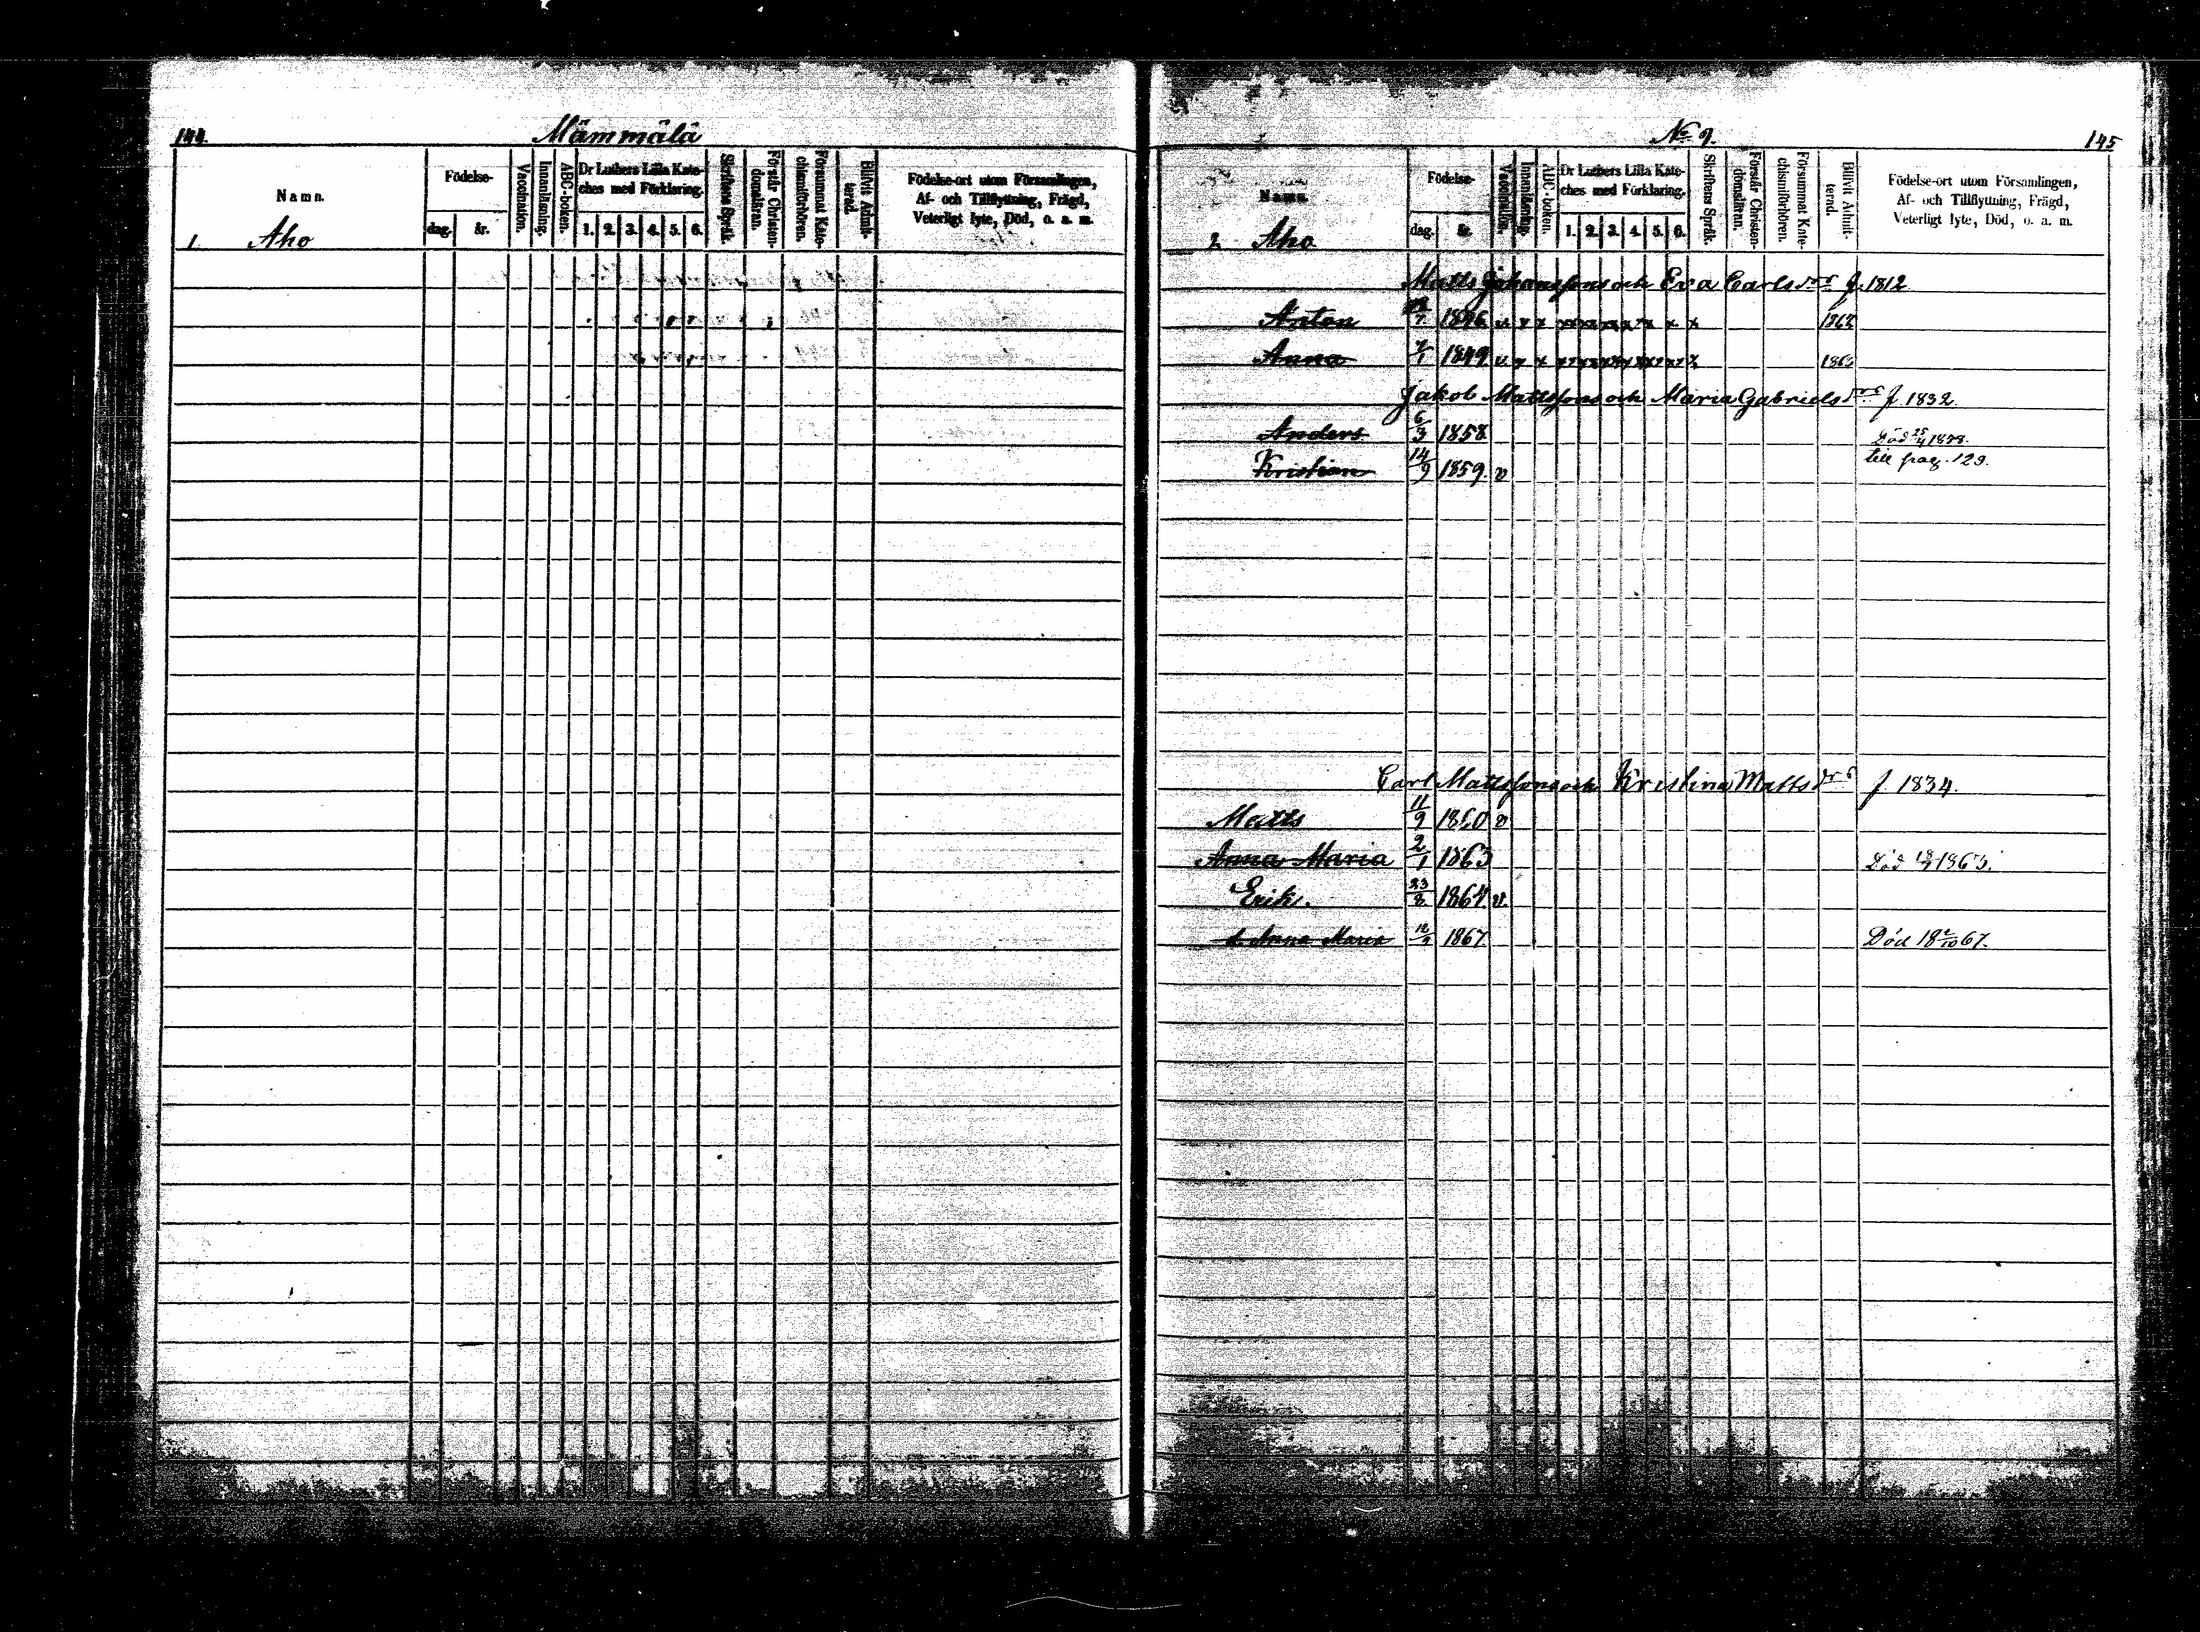 144.
Mämmälä
Namn.
Födelse-
dag.
år.
Vaccination.
Innanläsning.
ABC-boken.
Dr Luthers Lilla Kate-
ches med Förklaring.
1. 2. 3. 4. 5. 6.
Skriftens Språk.
Förstår Christen-
domsläran.
Försummat Kate-
chismiförhören.
Blifvit Admit-
terad.
Födelse-ort utom Församlingen,
Af- och Tillflyttning, Frägd,
Veterligt lyte, Död, o. a. m.
1. Aho
No 9.
145
Namn.
Födelse-
dag.
år.
Vaccination.
Innanläsning.
ABC-boken.
Dr Luthers Lilla Kate-
ches med Förklaring.
1. 2. 3. 4. 5. 6.
Skriftens Språk.
Förstår Christen-
domsläran.
Försummat Kate-
chismiförhören.
Blifvit Admit-
terad.
Födelse-ort utom Församlingen,
Af- och Tillflyttning, Frägd,
Veterligt lyte, Död, o. a. m.
2. Aho
Matts Johanssons och Eva Carlsdrs f. 1812
Anton 1846
Anna 1849
Jakob Mattssons och Maria Gabrielsdrs f. 1832.
Anders 6/3 1858 Död
Kristian 14/9 1859. v till pag. 129.
Carl Mattssons och Kristina Mattsdrs f. 1834.
Matts 11/9 1860 v
Anna Maria 2/1 1863 Död
Erik. 1864 v.
d. Anna Maria 1867. Död 18 2/10 67.